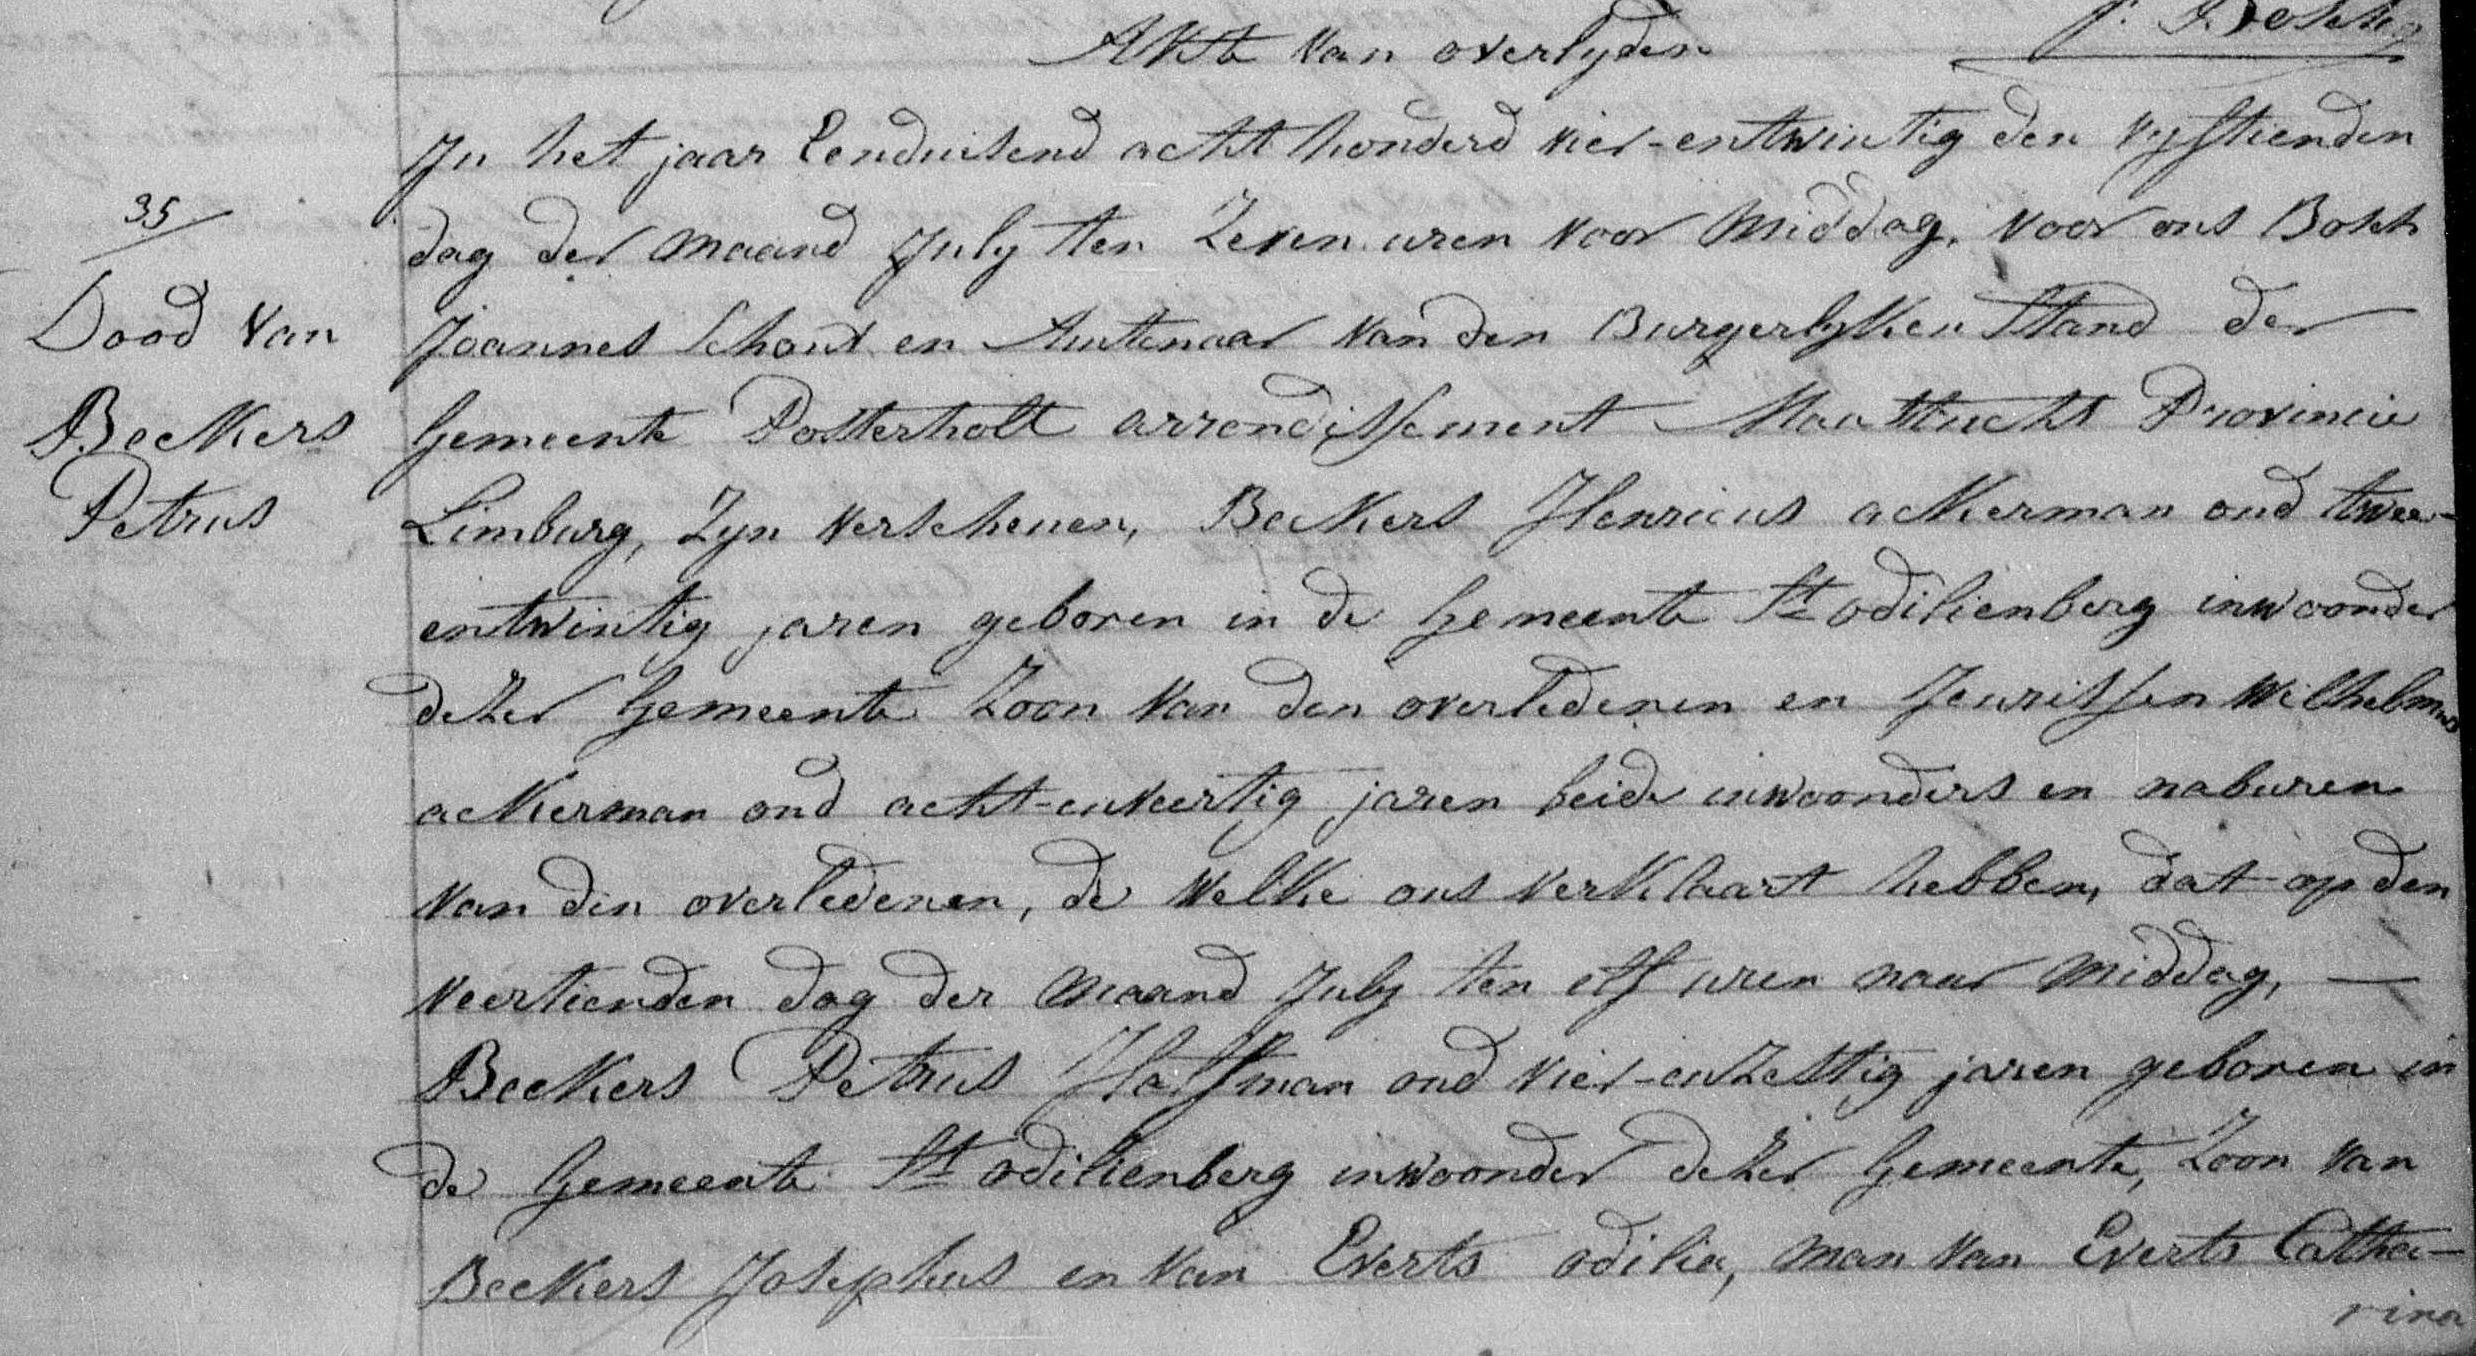 Akte van overlyden
In het jaar Eenduisend acht honderd vier-entwintig den vyftienden
dag der maand July ten Zeven uren voor Middag, voor ons
Joannes Schout en Amtenaar van den Burgerlyken Stand der
Gemeente Posterholt arrondissement Maastricht Provincie
Limburg, Zyn verschenen, Beckers Henricus ackerman oud twee-
entwintig jaren geboren in de Gemeente St odilienberg inwoonder
dezer Gemeente Zoon van den overledenen en Jeurissen Wilhelmus
ackerman oud acht-enveertig jaren beide inwoonders en naburen
van den overledenen, de welke ons verklaart hebben, dat op den
veertienden dag der maand July ten elf uren naar Middag, —
Beckers Petrus Halfman oud vier-enzestig jaren geboren in
de Gemeente St odilienberg inwoonder dezer Gemeente, Zoon van
Beckers Josephus en van Everts odilia, man van Everts Catha-
rina
35
Dood van
Beckers
Petrus